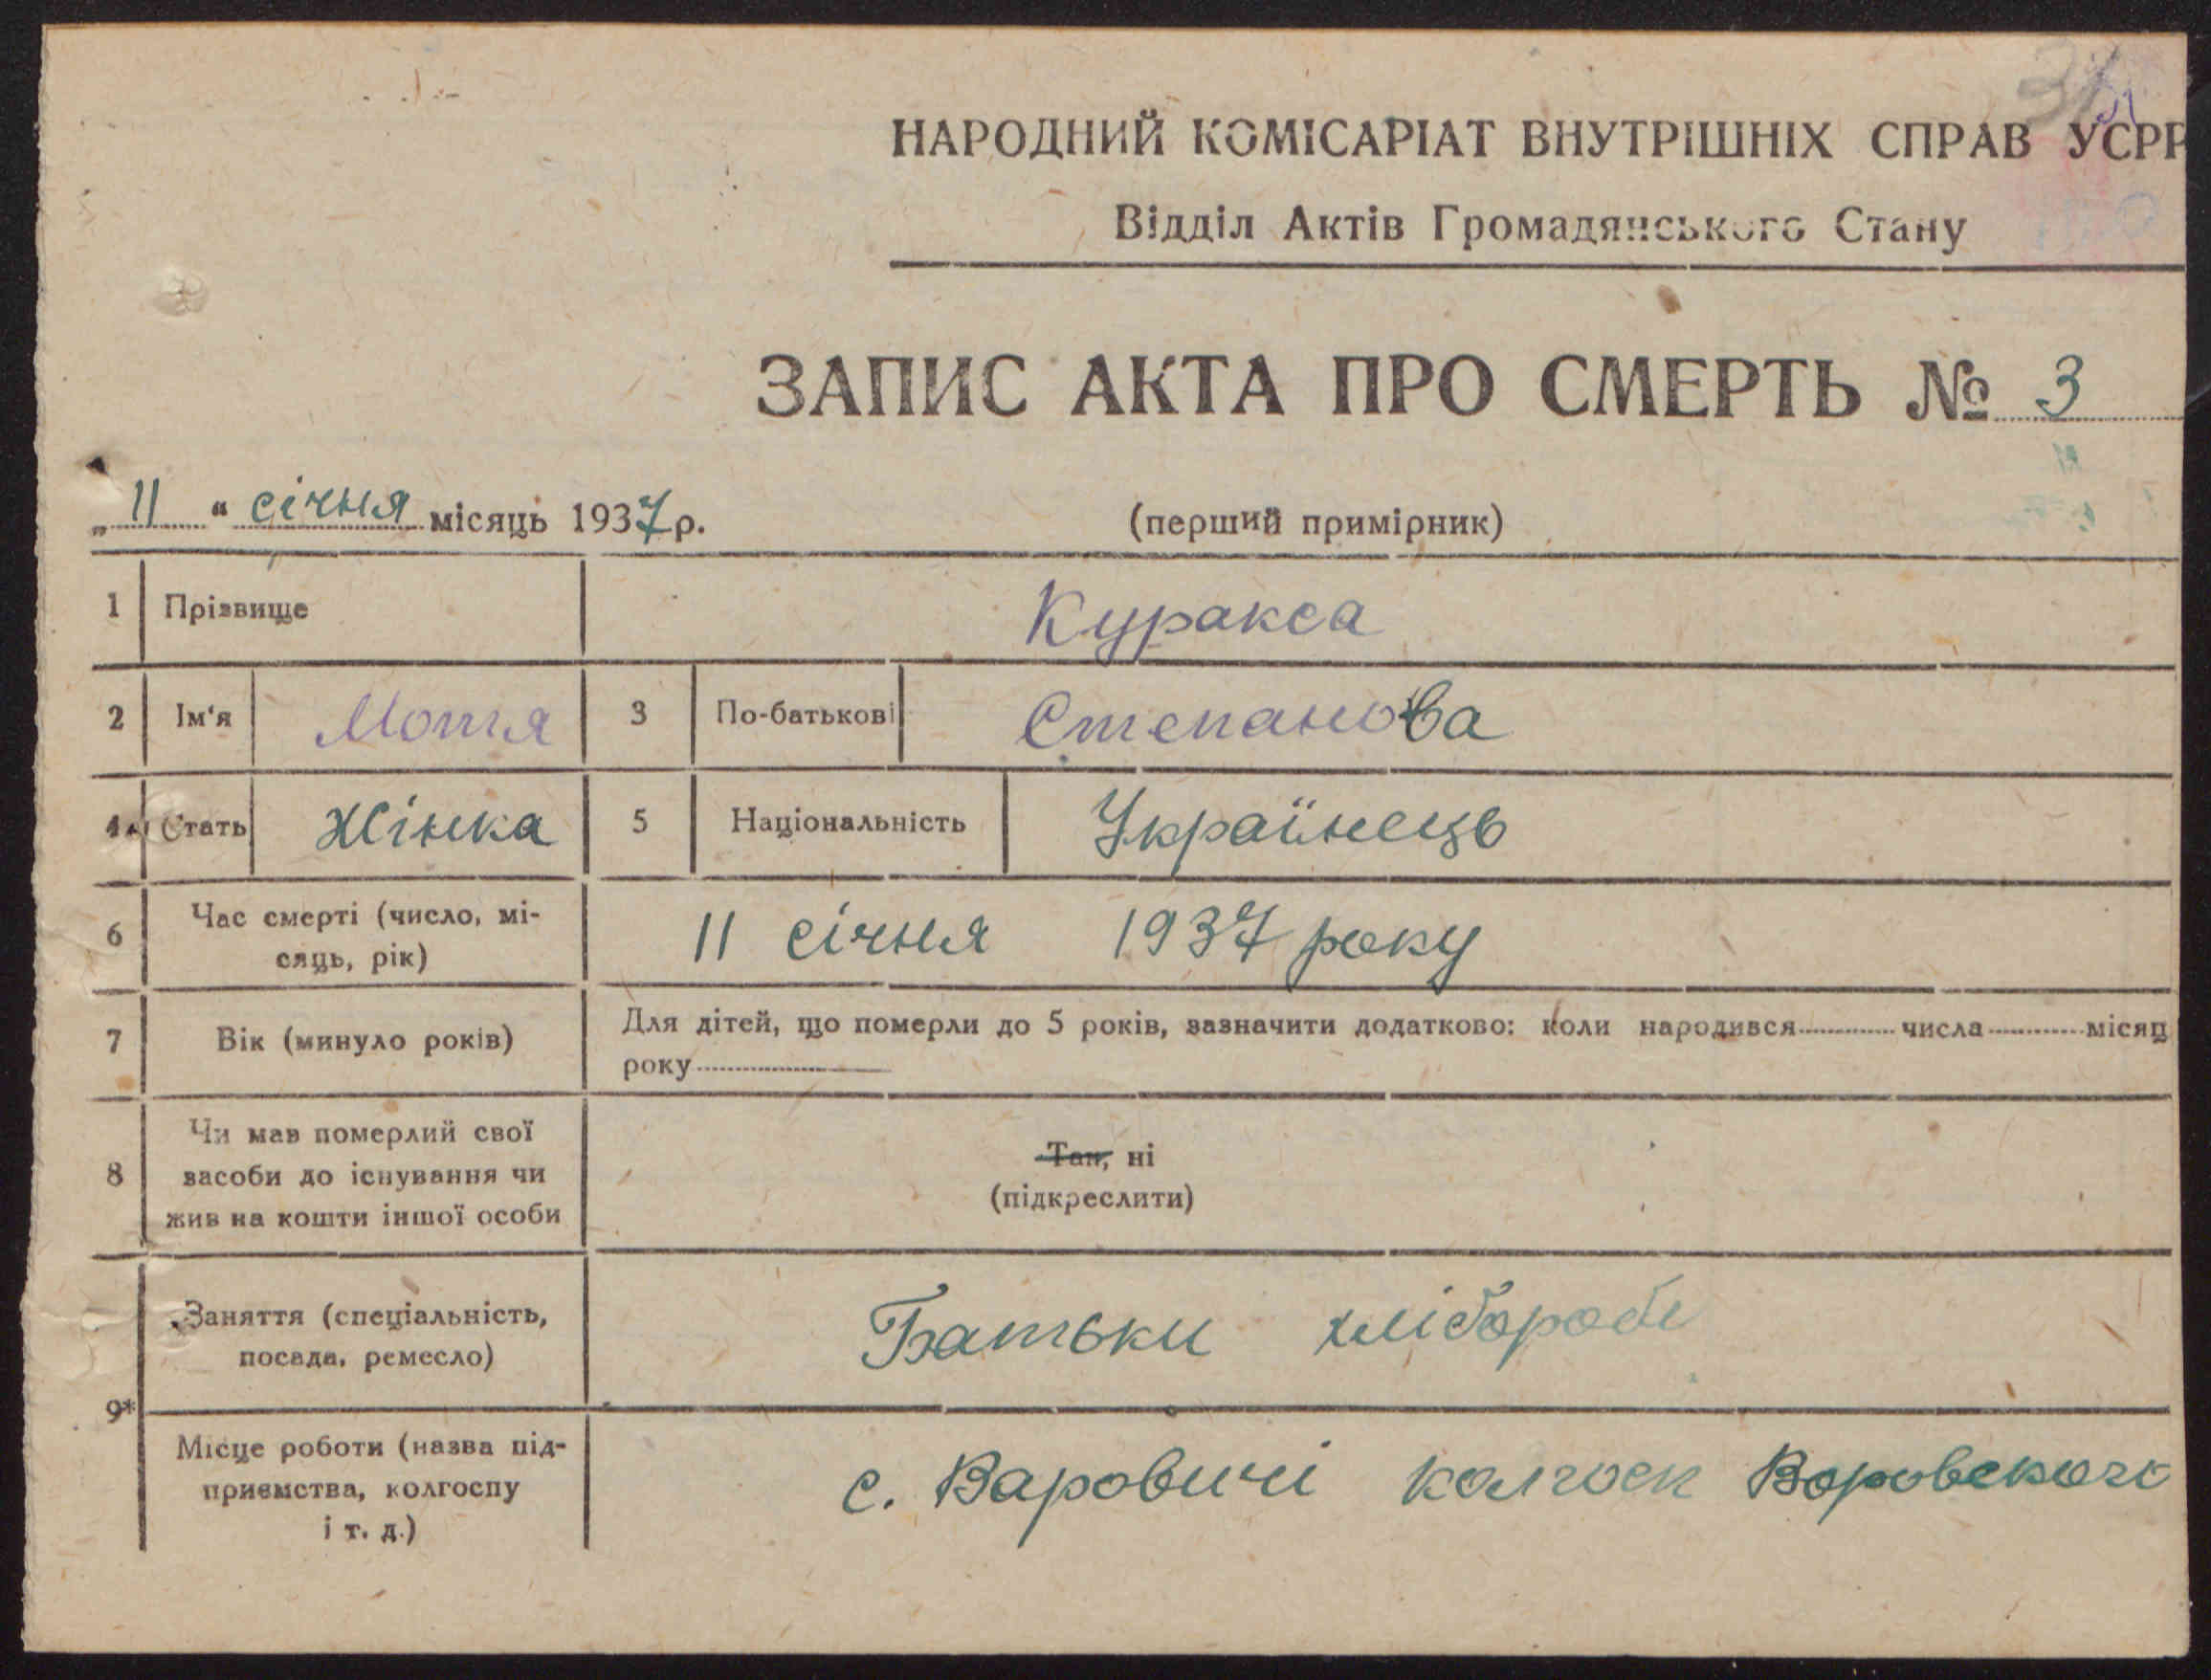 НАРОДНИЙ КОМІСАРІАТ ВНУТРІШНІХ СПРАВ УСРР
Відділ Актів Громадянського Стану
ЗАПИС АКТА ПРО СМЕРТЬ № 3
„ 11 “ січня місяць 1937 р.
(перший примірник)
1 Прізвище Куракса
2 Ім'я Мотя 3 По-батькові Степанова
4 Стать Жінка 5 Національність Українець
6 Час смерті (число, мі-
сяць, рік) 11 січня 1937 року
7 Вік (минуло років) Для дітей, що померли до 5 років, зазначити додатково: коли народився числа місяц
року
8 Чи мав померлий свої
засоби до існування чи
жив на кошти іншої особи
Так, ні
(підкреслити)
9*
Заняття (спеціальність,
посада, ремесло) Батьки хлібороби
Місце роботи (назва під-
приємства, колгоспу
і т. д.) с. Варовичі колгосп Воровського